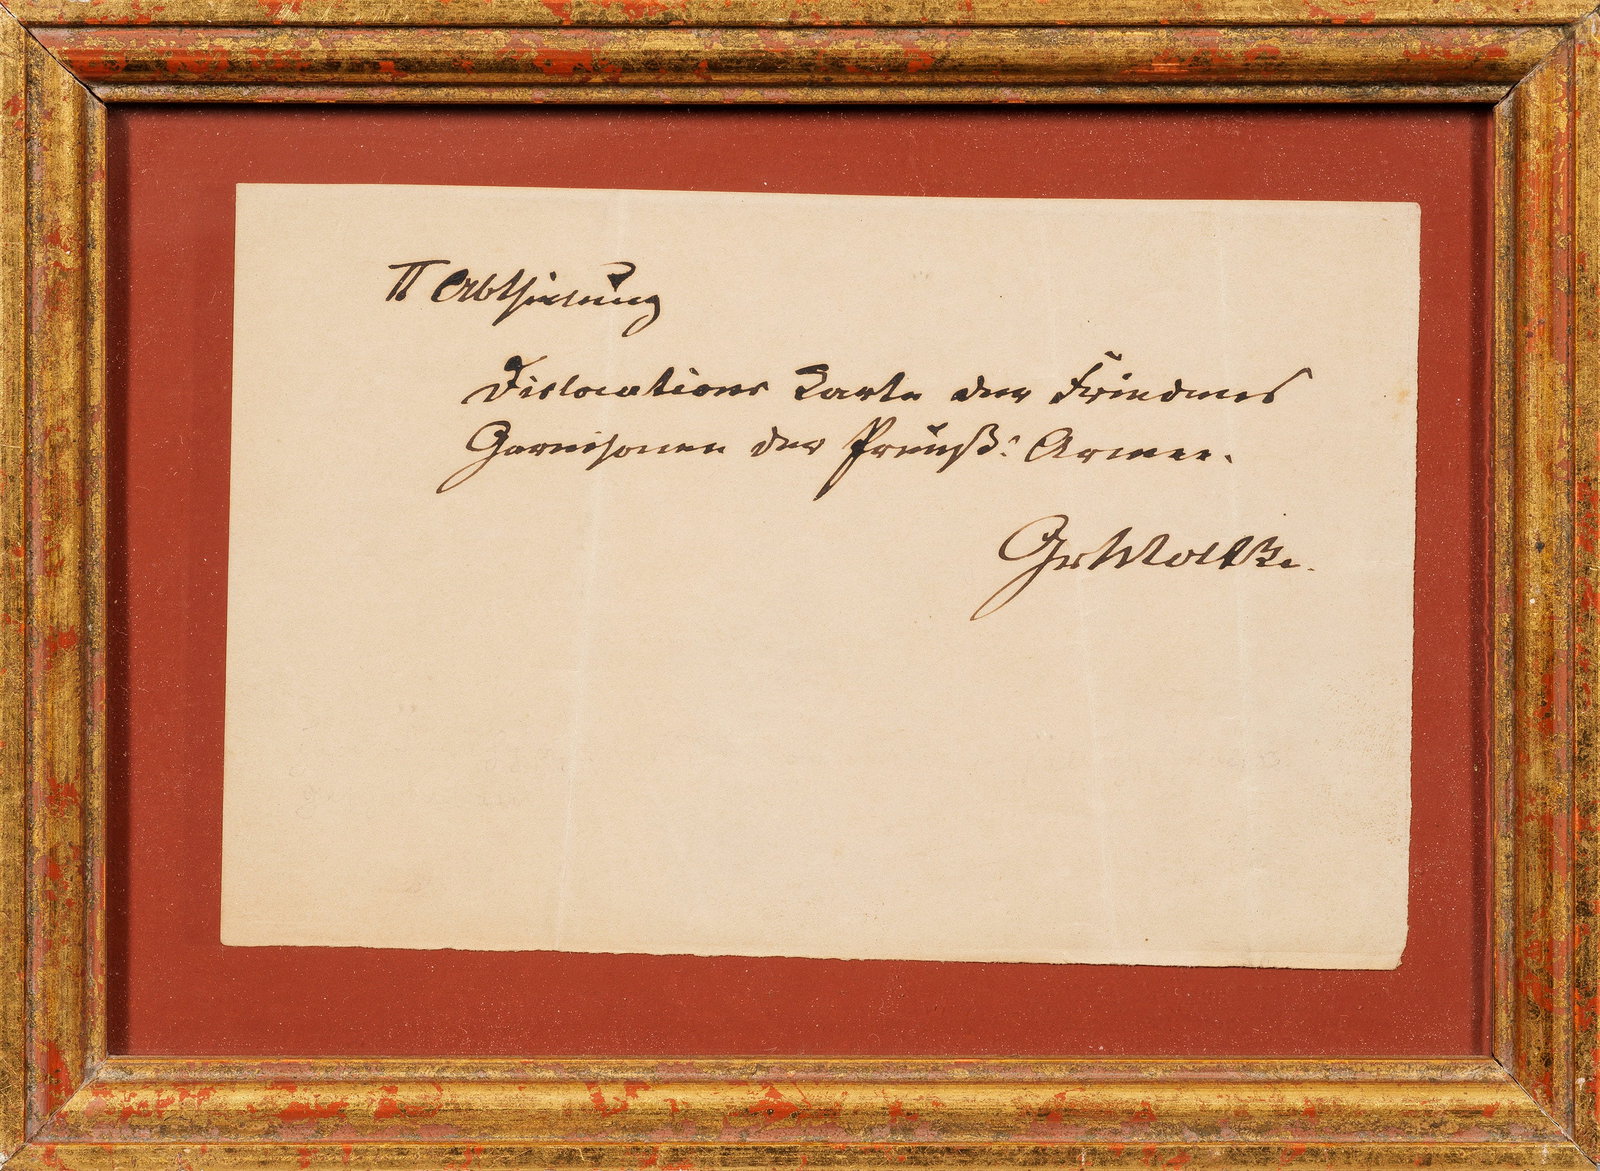 II Abtheilung
Dislocations Karte der Friedens
Garnisonen der Preuß: Armee.
Gr Moltke.